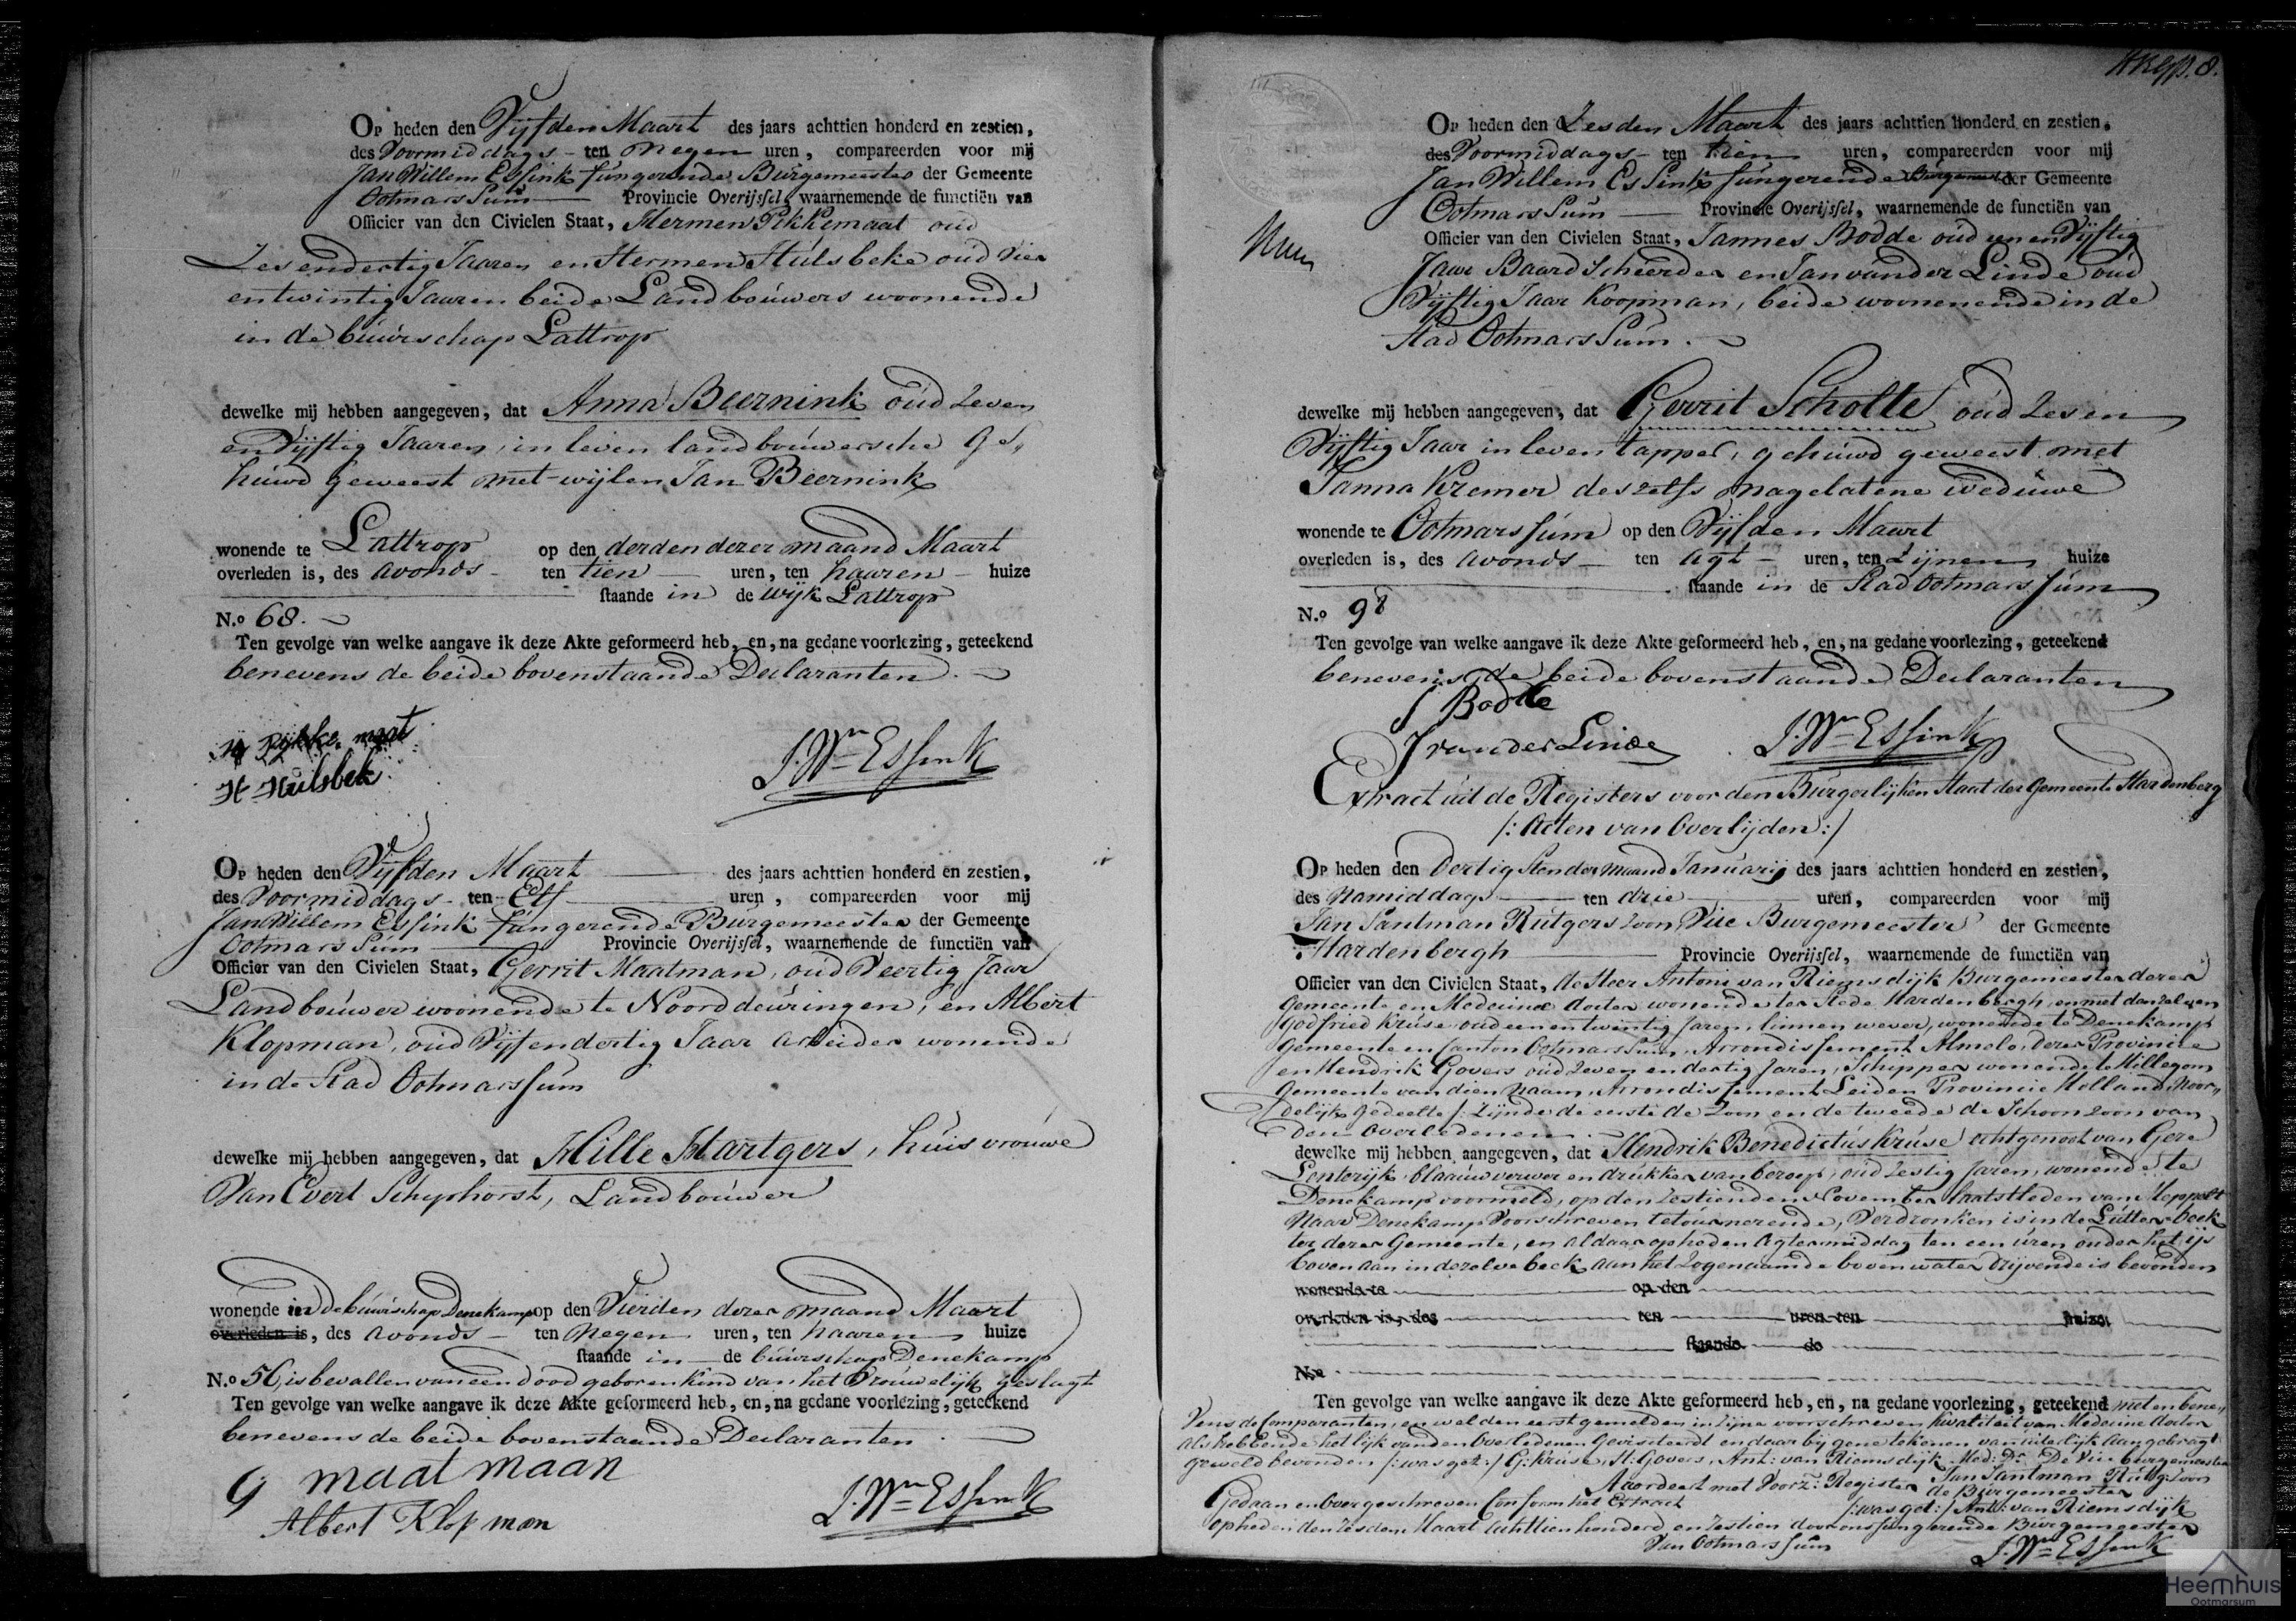 Op heden den Vijfden Maart des jaars achttien honderd en zestien,
des Voormiddags ten Negen uren, compareerden voor mij
Jan Willem Essink fungerende Burgemeester der Gemeente
Ootmarssum Provincie Overijssel, waarnemende de functiën van
Officier van den Civielen Staat, Hermen Pikkemaat oud
Zes endertig Jaaren en Hermen Hulsbeke oud Vier
entwintig Jaaren beide Landbouwers woonende
in de buurschap Lattrop
dewelke mij hebben aangegeven, dat Anna Beernink oud Zeven
en Vijftig Jaaren, in leven landbouwersche Ge„
huwd geweest met wijlen Jan Beernink
wonende te Lattrop op den derden dezer maand Maart
overleden is, des avonds ten tien uren, ten haaren huize
staande in de wijk Lattrop
N.o 68.
Ten gevolge van welke aangave ik deze Akte geformeerd heb, en, na gedane voorlezing, geteekend
benevens de beide bovenstaande Declaranten.
H Pijkke maat
H Hulsbek
J. Wm Essink
Op heden den Vijfden Maart des jaars achttien honderd en zestien,
des Voormiddags ten Elf uren, compareerden voor mij
Jan Willem Essink fungerende Burgemeester der Gemeente
Ootmarssum Provincie Overijssel, waarnemende de functiën van
Officier van den Civielen Staat, Gerrit Maatman, oud Veertig Jaar
Landbouwer woonende te Noorddeuringen, en Albert
Klopman, oud Vijfendertig Jaar arbeider wonende
in de Stad Ootmarssum
dewelke mij hebben aangegeven, dat Hille Hartgers, huisvrouwe
Van Evert Schiphorst, Landbouwer
wonende in de buurschap Denekamp op den Vierden dezer maand Maart
overleden is, des avonds ten Negen uren, ten haaren huize
staande in de buurschap Denekamp
N.o 56, is bevallen van een dood geboren kind van het Vrouwelijk geslagt
Ten gevolge van welke aangave ik deze Akte geformeerd heb, en, na gedane voorlezing, geteekend
benevens de beide bovenstaande Declaranten.
G maat maan
Albert Klopman
J. Wm Essink
8.
Op heden den Zesden Maart des jaars achttien honderd en zestien,
des Voormiddags ten tien uren, compareerden voor mij
Jan Willem Essink fungerende Burgemeester der Gemeente
Ootmarssum Provincie Overijssel, waarnemende de functiën van
Officier van den Civielen Staat, Jannes Bodde oud een en Vijftig
Jaar Baardscheerder en Jan van der Linde oud
Vijftig Jaar Koopman, beide woonenende in de
Stad Ootmarssum.
dewelke mij hebben aangegeven, dat Gerrit Scholte oud Zes en
Vijftig Jaar in leven tapper, gehuwd geweest met
Janna Kremer deszelfs nagelatene weduwe
wonende te Ootmarssum op den Vijfden Maart
overleden is, des avonds ten agt uren, ten Zijnen huize
staande in de Stad Ootmarssum
N.o 98
Ten gevolge van welke aangave ik deze Akte geformeerd heb, en, na gedane voorlezing, geteekend
benevens de beide bovenstaande Declaranten
J Bodde
J van der Linde
J. Wm Essink
Extract uit de Registers voor den Burgerlijken Staat der Gemeente Hardenberg
/: Acten van Overlijden :/
Op heden den dertigsten der maand Januarij des jaars achttien honderd en zestien,
des Namiddags ten drie uren, compareerden voor mij
Jan Santman Rutgers Zoon, Vice Burgemeester der Gemeente
Hardenbergh Provincie Overijssel, waarnemende de functiën van
Officier van den Civielen Staat, de Heer Antoni van Riemsdijk Burgemeester dezer
Gemeente en Medicinae doctor wonende ter Stede Hardenbergh, en met denzelven
Godfried Kruse oud een en twintig Jaren, linnen wever, wonende te Denekamp
Gemeente en Canton Ootmarssum, Arrondissement Almelo, dezer Provincie
en Hendrik Govers oud Zeven en dertig Jaren, Schipper wonende te Hillegom
Gemeente van dien naam, Arrondissement Leiden Provincie Holland Noor„
delijk gedeelte /: Zijnde de eerste de Zoon en de tweede de Schoonzoon van
den Overledenen.
dewelke mij hebben aangegeven, dat Hendrik Benedictus Kruse echtgenoot van Gere
Lenterijk, blaauwverwer en drukker van beroep, oud Zestig Jaren, wonende te
Denekamp voormeld, op den Zestienden November laatstleden van Meppelt
Naar Denekamp Voorschreven retournerende, Verdronken is in de Lutter beek
ter dezer Gemeente, en aldaar op heden agtermiddag ten een uren onder het ijs
boven aan in dezelve beek aan het Zogenaamde bovenwater drijvende is bevonden
wonende te op den
overleden is, des ten uren ten huize
staande de
N.o
Ten gevolge van welke aangave ik deze Akte geformeerd heb, en, na gedane voorlezing, geteekend met en bene„
Vens de Comparanten, en wel den eerst gemelden in Zijne voorschreven kwaliteit van Medicine doctor
als hebbende het lijk van den Overledenen Gevisiteerd en daar bij gene tekenen van uiterlijk aangebragt
geweld bevonden /: was get :/ G: Kruse, H: Govers, Ant: van Riemsdijk Med: Dr. De Vice burgemeester
Jan Santman Rutg: Zoon
Accordeert met Voorz: Register de Burgemeester
/: was get :/ Ant: van Riemsdijk
Gedaan en Overgeschreven Conform het Extract
op heden den Zesden Maart Achttien honderd en Zestien door ons fungerende Burgemeester
Van Ootmarssum
J. Wm Essink
Heemhuis
Ootmarsum